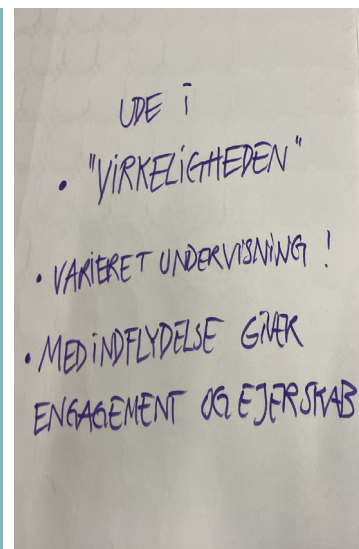 UDE i
• "ViRKELiGHEDEN"
• VARIERET UNDERVISNiNG !
• MEDiNDFLYDELSE GiVER
ENGAGEMENT OG EJERSKAB